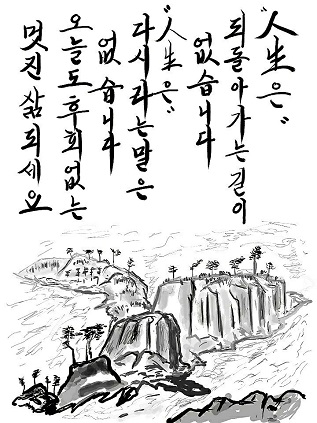 "人生은"
되돌아가는길이
없습니다
"人生은"
다시라는말은
없습니다
오늘도후회없는
멋진삶되세요